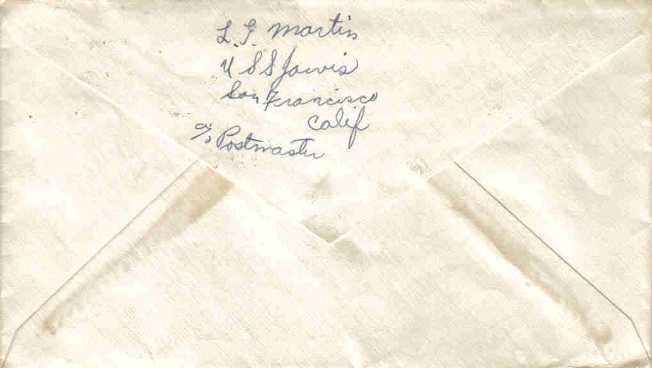 L. G. Martin
U S S Jarvis
San Francisco
Calif
c/o Postmaster